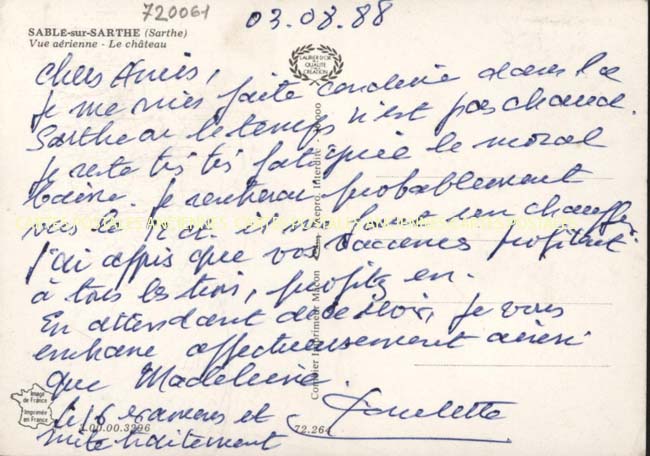 720061
03.08.88
SABLE-sur-SARTHE (Sarthe)
Vue aérienne - Le château
LAURIER D'OR
DE
QUALITÉ
DE
CRÉATION
Chers Amis,
Je me suis faite conduire dans la
Sarthe le temps n'est pas chaud.
Je reste très très fatiguée le moral
baisse. Je rentrerai probablement
vers le
j'ai appris que vos vacances profitent
à tous les trois, profitez en.
En attendant de vous je vous
embrasse affectueusement ainsi
que Madeleine.
Le 16 examens et
suite traitement
Paulette
Combier Imprimeur Macon
Repro. Interdite
Image
de France
Imprimée
en France
3.00.00.3296
72.264